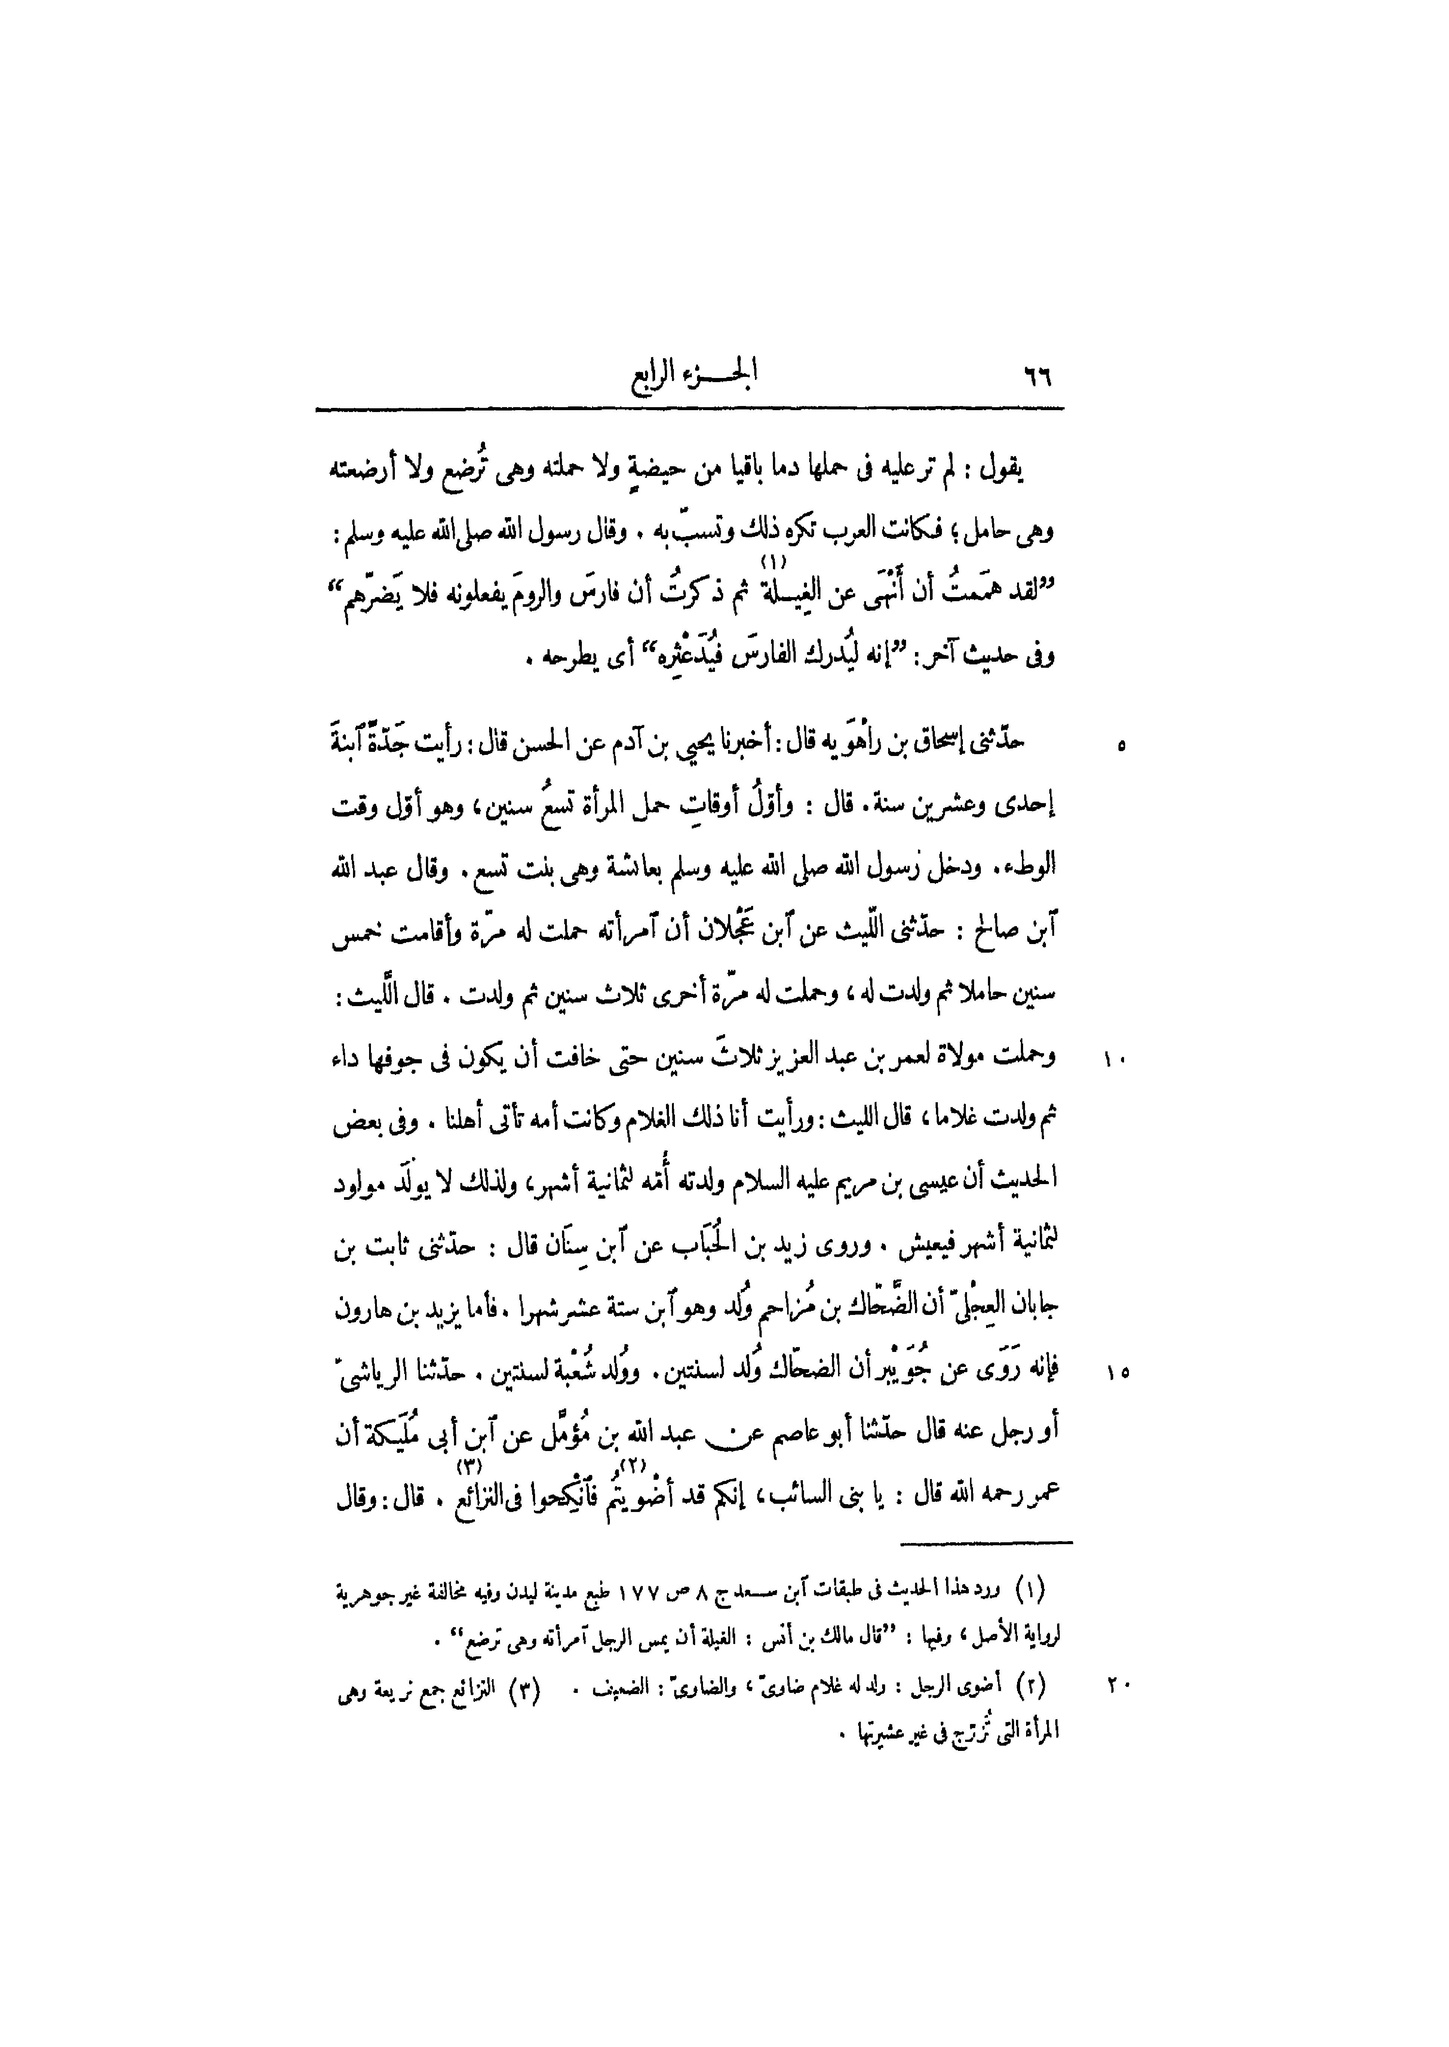 ٦٦ الجـــزء الرابع
يقول : لم تر عليه فى حملها دما باقيا من حيضةٍ ولا حملته وهى تُرضع ولا أرضعته
وهى حامل؛ فكانت العرب تكره ذلك وتسبّ به . وقال رسول الله صلى الله عليه وسلم :
”لقد همَمتُ أن أَنْهَى عن الغِيلة (١) ثم ذكرتُ أن فارسَ والرومَ يفعلونه فلا يَضرّهم“
وفى حديث آخر : ”إنه ليُدرك الفارسَ فيُدَعْثِره“ أى يطرحه .
حدّثنى إسحاق بن راهْوَيه قال : أخبرنا يحيى بن آدم عن الحسن قال : رأيت جَدّةً آبنةَ ٥
إحدى وعشرين سنة . قال : وأوّلُ أوقاتِ حمل المرأة تسعُ سنين، وهو أوّل وقت
الوطء . ودخل رسول الله صلى الله عليه وسلم بعائشة وهى بنت تسع . وقال عبد الله
آبن صالح : حدّثنى اللّيث عن آبن عَجْلان أن آمرأته حملت له مرّة وأقامت خمس
سنين حاملا ثم ولدت له، وحملت له مرّة أخرى ثلاث سنين ثم ولدت . قال اللَّيث :
وحملت مولاة لعمر بن عبد العزيز ثلاثَ سنين حتى خافت أن يكون فى جوفها داء ١٠
ثم ولدت غلاما، قال الليث : ورأيت أنا ذلك الغلام وكانت أمه تأتى أهلنا . وفى بعض
الحديث أن عيسى بن مريم عليه السلام ولدته أُمّه لثمانية أشهر، ولذلك لا يولَد مولود
لثمانية أشهر فيعيش . وروى زيد بن الحُبَاب عن آبن سِنَان قال : حدّثنى ثابت بن
جابان العِجْلىّ أن الضَّحّاك بن مُزاحم وُلد وهو آبن ستة عشر شهرا . فأما يزيد بن هارون
فإنه رَوَى عن جُوَيْبر أن الضحّاك وُلد لسنتين . ووُلد شُعْبة لسنتين . حدّثنا الرياشىّ ١٥
أو رجل عنه قال حدّثنا أبو عاصم عن عبد الله بن مُؤمَّل عن آبن أبى مُلَيكة أن
عمر رحمه الله قال : يا بنى السائب، إنكم قد أضْويتُم (٢) فآنْكِحوا فى النزائع (٣) . قال : وقال
(١) ورد هذا الحديث فى طبقات آبن سعد ج ٨ ص ١٧٧ طبع مدينة ليدن وفيه مخالفة غير جوهرية
لرواية الأصل، وفيها : ”قال مالك بن أنس : الغيلة أن يمس الرجل آمرأته وهى ترضع“ .
(٢) أضوى الرجل : ولد له غلام ضاوىّ، والضاوىّ : الضعيف . (٣) النزائع جمع نزيعة وهى ٢٠
المرأة التى تُزوّج فى غير عشيرتها .